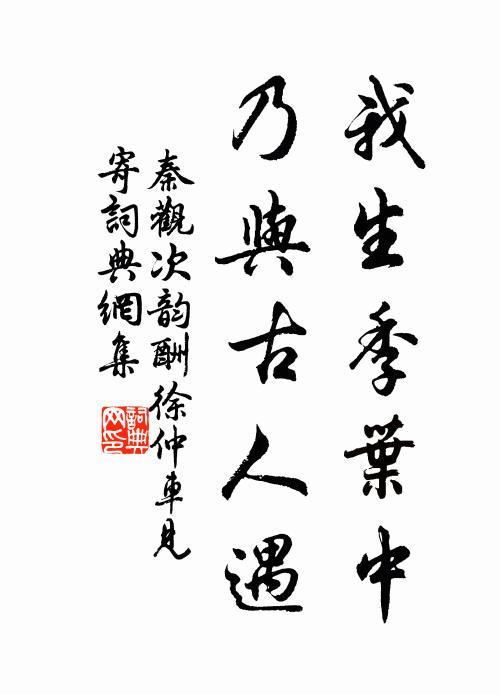 我生季葉中
乃與古人遇
秦觀次韵酬徐仲車見
寄詞典網集
詞典网印